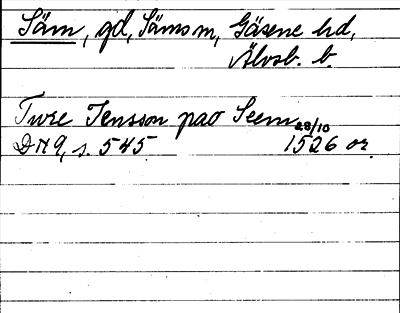 Säm, gd, Säms m, Gäsene hd,
Älvsb. b.
Twre Jensson pao Seem
28/10
DN 9, s. 545. 1526 or.